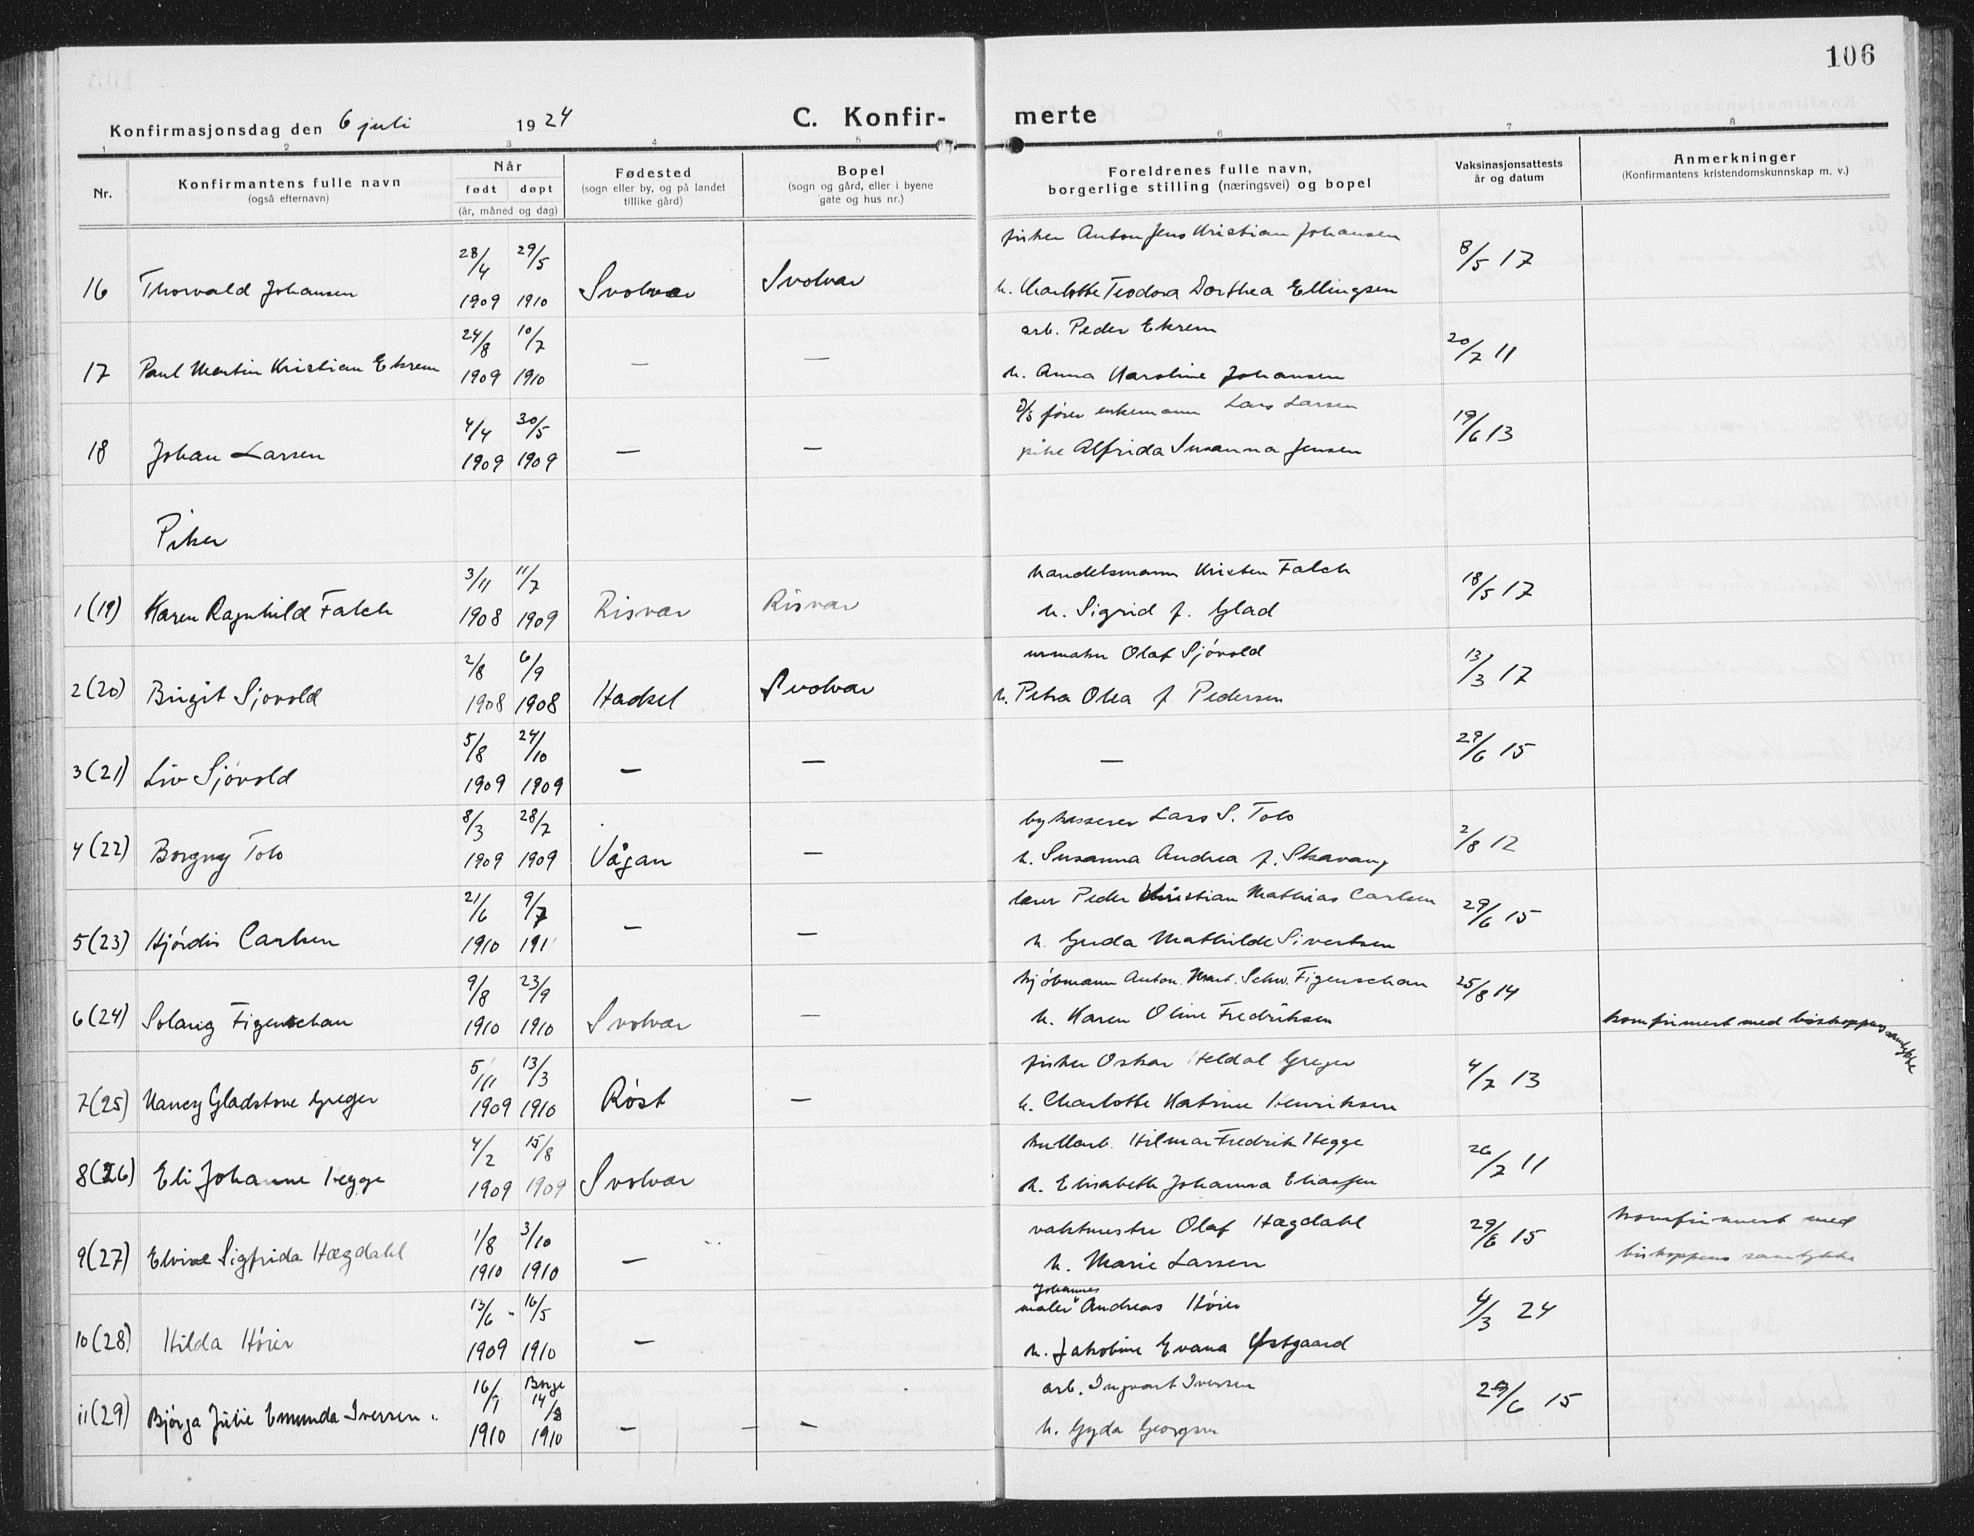 106
Konfirmasjonsdag den 6 juli 1924
C. Konfir- merte
1 2 3 4 5 6 7 8
Nr. Konfirmantens fulle navn (også efternavn) Når født døpt (år, måned og dag) Fødested (sogn eller by, og på landet tillike gård) Bopel (sogn og gård, eller i byene gate og hus nr.) Foreldrenes fulle navn, borgerlige stilling (næringsvei) og bopel Vaksinasjonsattests år og datum Anmerkninger (Konfirmantens kristendomskunnskap m. v.)
28/4 29/5 fisker Anton Jens Kristian Johansen 8/5 17
16 Thorvald Johansen 1909 1910 Svolvær Svolvær h. Charlotte Teodora Dorthea Ellingsen
24/8 10/7 arb. Peder Ekrem 20/7 11
17 Paul Martin Kristian Ekrem 1909 1910 — — h. Anna Karoline Johansen
4/4 30/5 D/S fører enkemann Lars Larsen 19/6 13
18 Johan Larsen 1909 1909 — — pike Alfrida Susanna Jensen
Piker
3/11 11/7 handelsmann Kristen Falch 18/5 17
1(19) Karen Ragnhild Falch 1908 1909 Risvær Risvær h. Sigrid f. Glad
2/8 6/9 urmaker Olaf Sjövold 13/3 17
2(20) Birgit Sjovold 1908 1908 Hadsel Svolvær h. Petra Olea f. Pedersen
5/8 24/10 29/6 15
3(21) Liv Sjövold 1909 1909 — — —
8/3 28/7 bykasserer Lars S. Tolo 2/8 12
4(22) Borgny Tolo 1909 1909 Vågan — h. Susanna Andrea f. Skavang
21/6 9/7 lærer Peder Kristian Mathias Carlsen 29/6 15
5(23) Hjördis Carlsen 1910 191 — — h. Gerda Mathilde Sivertsen
9/8 23/9 kjöbmann Anton Mart. Schw. Figenschau 25/8 14
6(24) Solveig Figenschau 1910 1910 Svolvær — h. Karen Oline Fredriksen konfirmert med biskoppens samtykke
5/11 13/3 fisker Oskar Heldal Greger 4/7 13
7(25) Nancy Gladstone Greger 1909 1910 Røst — h. Charlotte Katrine Henriksen
4/2 15/8 kullarb. Hilmar Fredrik Hegge 26/7 11
8(26) Eli Johanne Hegge 1909 1909 Svolvær h. Elisabeth Johanna Eliassen
1/8 3/10 vaktmestre Olaf Hægdahl 29/6 15 konfirmert med
9(27) Elvine Sigfrida Hægdahl 1910 1910 — h. Marie Larsen biskoppens samtykke
Johannes
13/6 - 16/5 maler Andreas Höier 4/3 24
10(28) Hilda Höier 1909 1910 — h. Jakobine Evana Østgaard
16/1 Borge 14/8 arb. Ingvart Iversen 29/6 15
11(29) Bjørga Julie Emunda Iversen 1910 1910 — — — h. Gyda Georgsen